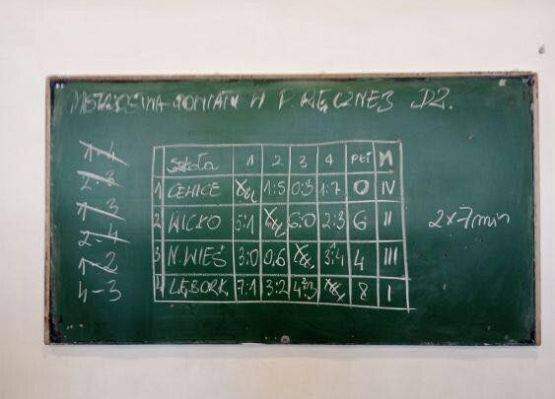 MISTRZOSTWA POWIATU W P. RĘCZNEJ DZ.
1-4
2-3
1-3
2-4
1-2
4-3
Szkoła 1 2 3 4 PKT M
1 CEWICE 1:5 0:3 1:7 0 IV
2 WICKO 5:1 6:0 2:3 6 II
3 N. WIEŚ 3:0 0:6 3:4 4 III
4 LĘBORK 7:1 3:2 4:3 8 I
2x7min